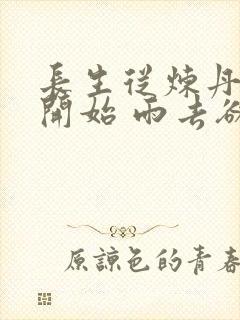 長生從煉丹
開始 雨去欲
原諒色的青春